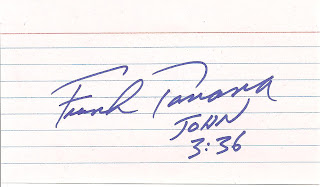 Frank Tanana
JOHN
3:36